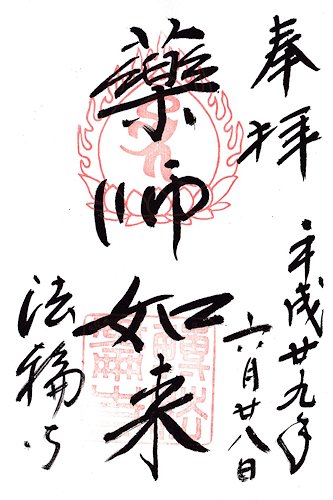 奉拝
平成廿九年
六月廿八日
藥師如来
法輪寺